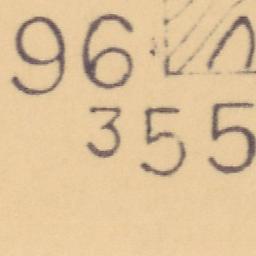 96
355